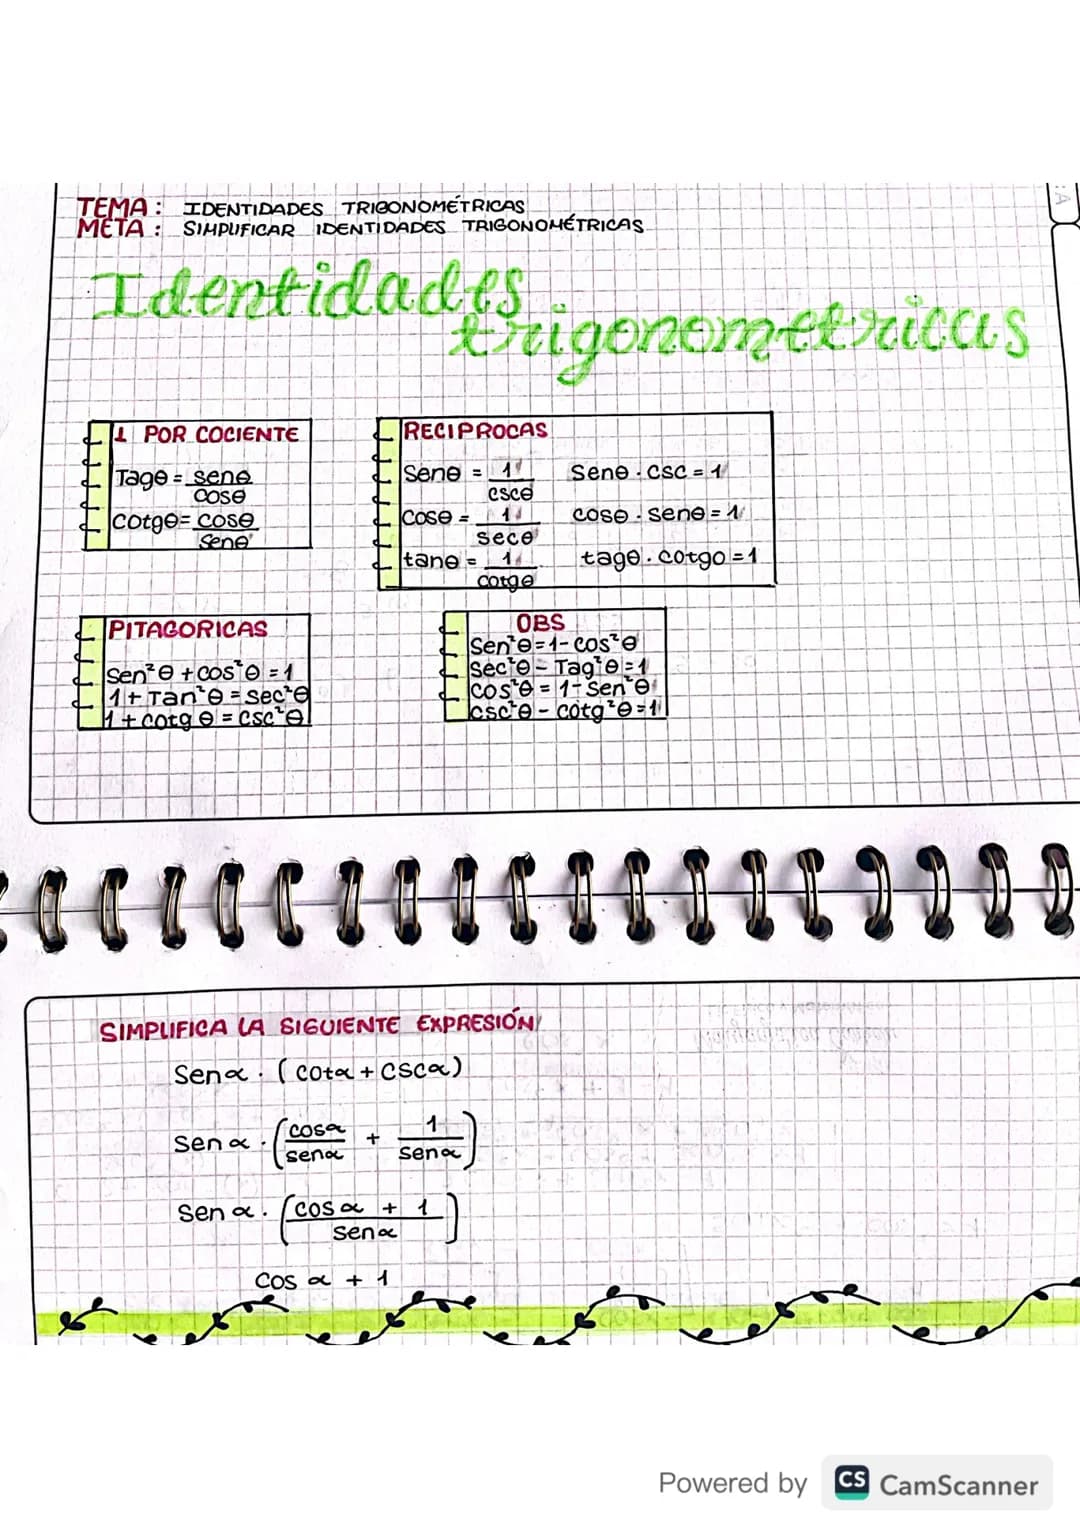 TEMA: IDENTIDADES TRIGONOMÉTRICAS
META: SIMPLIFICAR IDENTIDADES TRIGONOMÉTRICAS
Identidades
trigonometricas
1 POR COCIENTE
Tagθ = senθ
cosθ
cotgθ = cosθ
senθ
RECIPROCAS
Senθ = 1 Senθ · csc = 1
cscθ
Cosθ = 1 cosθ · senθ = 1
secθ
tanθ = 1 tagθ · cotgo = 1
cotgθ
PITAGORICAS
Sen²θ + cos²θ = 1
1 + Tan²θ = sec²θ
1 + cotg θ = csc²θ
OBS
Sen²θ = 1 - cos²θ
Sec²θ - Tag²θ = 1
cos²θ = 1 - Sen²θ
csc²θ - cotg²θ = 1
SIMPLIFICA LA SIGUIENTE EXPRESIÓN
Sen α · (cotα + cscα)
Sen α · (cosα + 1)
senα senα
Sen α · (cos α + 1)
senα
Cos α + 1
Powered by CS CamScanner